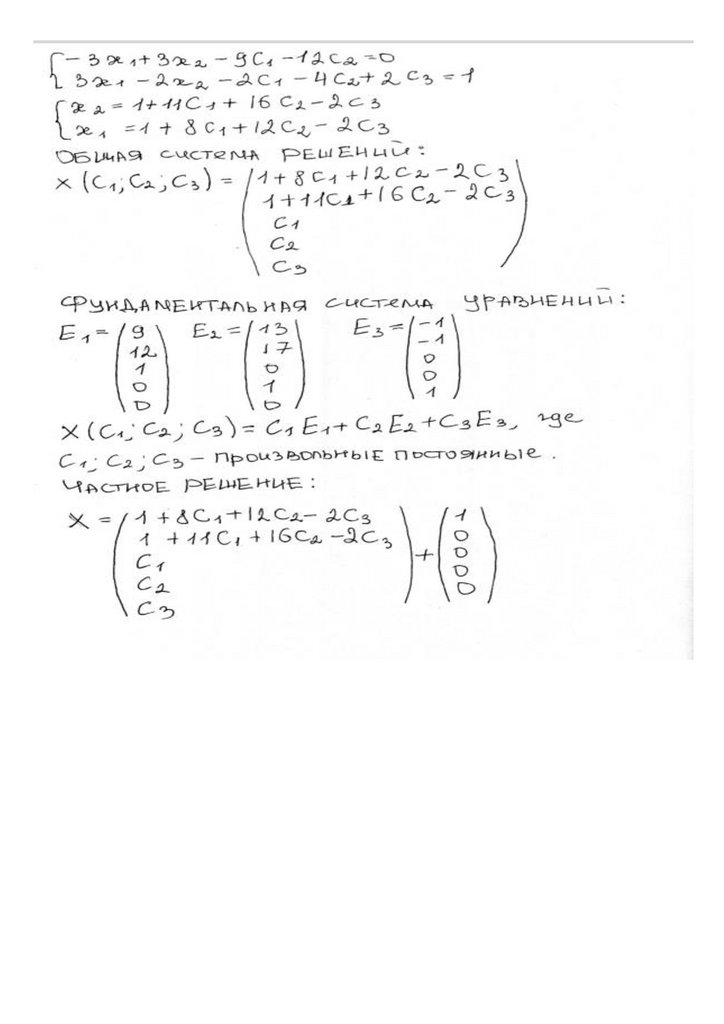 { -3x₁ + 3x₂ - 9C₁ - 12C₂ = 0
{ 3x₁ - 2x₂ - 2C₁ - 4C₂ + 2C₃ = 1
{ x₂ = 1 + 11C₁ + 16C₂ - 2C₃
{ x₁ = 1 + 8C₁ + 12C₂ - 2C₃
ОБЩАЯ СИСТЕМА РЕШЕНИЙ:
X (C₁; C₂; C₃) = ( 1 + 8C₁ + 12C₂ - 2C₃
1 + 11C₁ + 16C₂ - 2C₃
C₁
C₂
C₃ )
ФУНДАМЕНТАЛЬНАЯ СИСТЕМА УРАВНЕНИЙ:
E₁ = ( 9 12 1 0 0 ) E₂ = ( 13 17 0 1 0 ) E₃ = ( -1 -1 0 0 1 )
X (C₁; C₂; C₃) = C₁E₁ + C₂E₂ + C₃E₃, где
C₁; C₂; C₃ – ПРОИЗВОЛЬНЫЕ ПОСТОЯННЫЕ.
ЧАСТНОЕ РЕШЕНИЕ:
X = ( 1 + 8C₁ + 12C₂ - 2C₃
1 + 11C₁ + 16C₂ - 2C₃
C₁
C₂
C₃ ) + ( 1 0 0 0 0 )